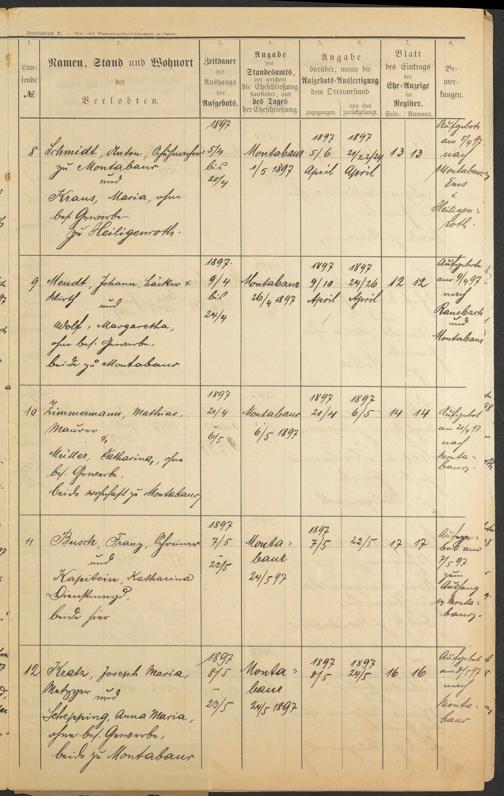 1.
2.
3.
4.
5.
6.
7.
8.
Lau-
fende
№
Namen, Stand und Wohnort
der
Verlobten.
Zeitdauer
des
Aushangs
des
Aufgebots.
Angabe
des
Standesamts,
vor welchem
die Eheschließung
stattfindet, und
des Tages
der Eheschließung.
Angabe
darüber, wann die
Aufgebots-Ausfertigung
dem Ortsvorstand
zugegangen.
von ihm
zurückgelangt.
Blatt
des Eintrags
der
Ehe-Anzeige
im
Register.
Seite.
Nummer.
Be-
mer-
kungen.
8
Schmidt, Anton, Schuhmacher
zu Montabaur
und
Kraus, Maria, ohne
bes. Gewerbe
zu Heiligenroth.
1897
5/4
bis
20/4
Montabaur
1/5 1897
1897
5/6
April
1897
21/22/24
April
13 13
Aufgebots
am 5/4 97
nach
Montabaur
Ems
u
Heiligen-
roth.
9
Mendt, Johann, Bäcker u
Wirth
und
Wolf, Margaretha,
ohne bes. Gewerbe.
beide zu Montabaur
1897.
9/4
bis
24/4
Montabaur
26/4 1897
1897
9/10
April
1897
24/26
April
12 12
Aufgebots
am 9/4 97
nach
Ransbach
und
Montabaur
10
Zimmermann, Mathias,
Maurer
&
Müller, Catharina, ohne
bes. Gewerbe.
beide wohnhaft zu Montabaur
1897
21/4
-
6/5
Montabaur
6/5 1897
1897
21/4
1897
6/5
14 14
Aufgebot
am 21/4 97
nach
Monta-
baur.
11
Busch, Franz, Schreiner
und
Kapitein, Katharina
Dienstmagd.
beide hier
1897
7/5
-
22/5
Monta-
baur
24/5 97
1897
7/5
22/5
17 17
Aufge-
bot am
7/5 97
zum
Aushang
zu Monta-
baur.
12
Kratz, Joseph Maria,
Metzger und
Schepping, Anna Maria,
ohne bes. Gewerbe,
beide zu Montabaur
1897
8/5
-
23/5
Monta-
baur
24/5 1897
1897
8/5
1897
24/5
16 16
Aufgebot
am 8/5 97
nach
Monta-
baur